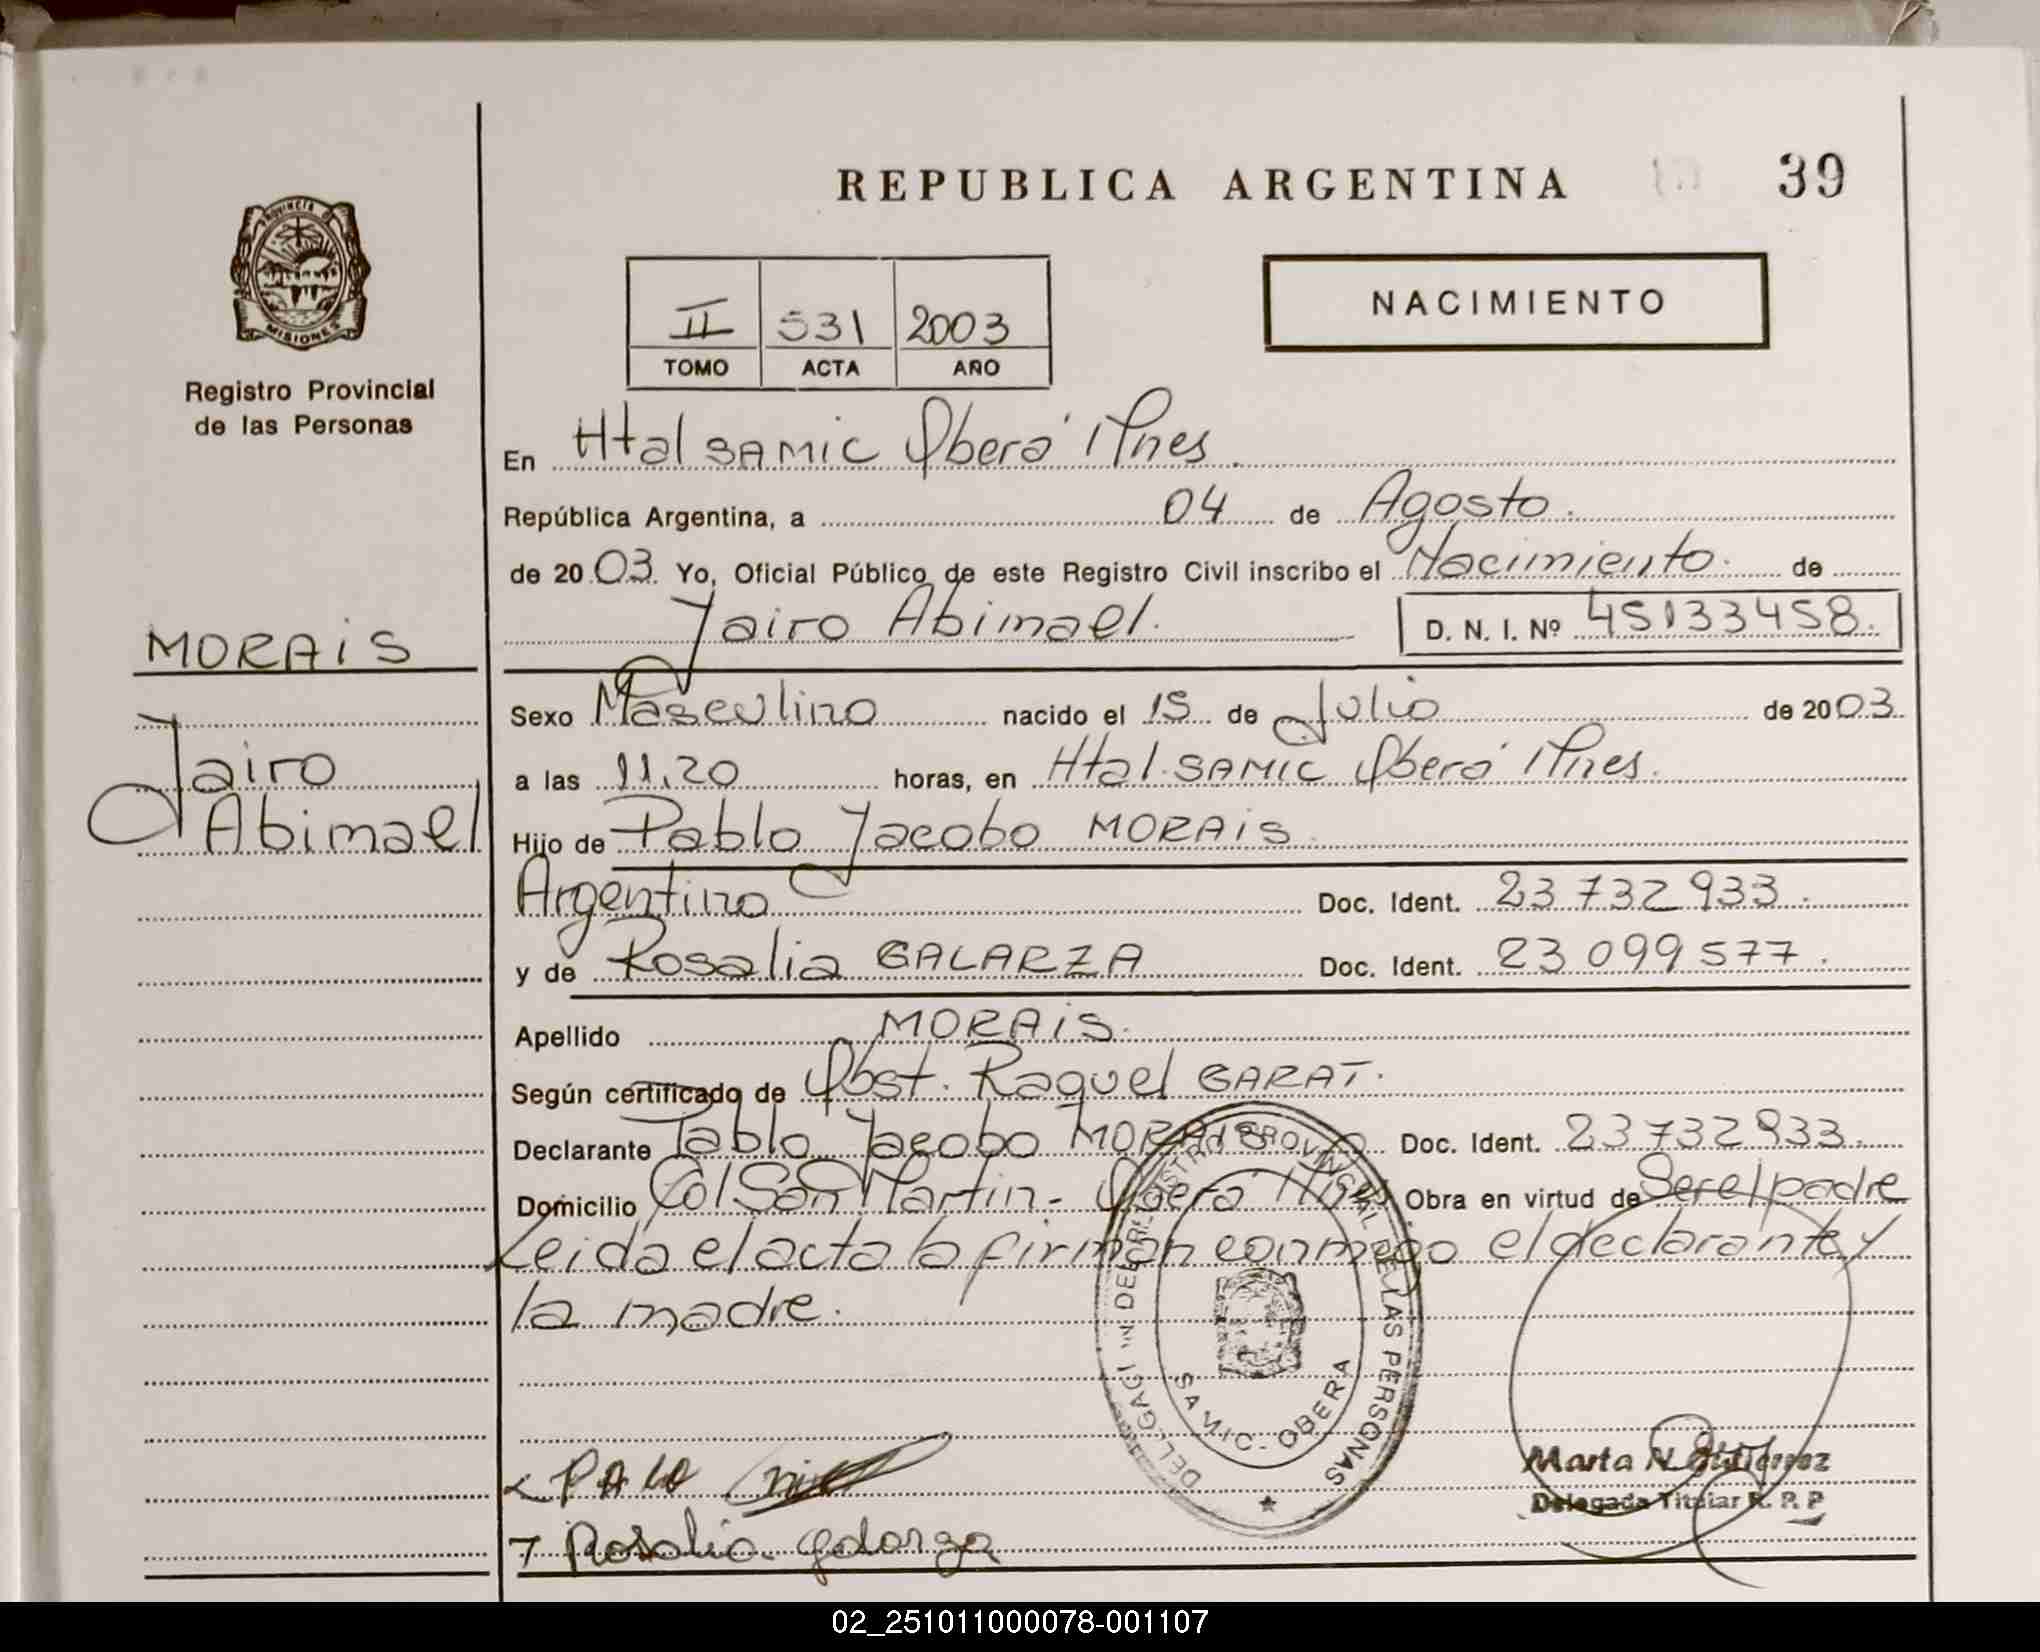 REPUBLICA ARGENTINA
39
PROVINCIA D
MISIONES
Registro Provincial
de las Personas
II 531 2003
TOMO ACTA AÑO
NACIMIENTO
En Htal SAMIC Oberá Mnes.
República Argentina, a 04 de Agosto.
de 2003. Yo, Oficial Público de este Registro Civil inscribo el Nacimiento. de
Jairo Abimael. D. N. I. Nº 45133458.
MORAiS
Jairo
Abimael
Sexo Masculino nacido el 15 de Julio de 2003.
a las 11.20 horas, en Htal. SAMIC Oberá Mnes.
Hijo de Pablo Jacobo MORAiS.
Argentino Doc. Ident. 23 732 933.
y de Rosalia GALARZA Doc. Ident. 23 099 577.
Apellido MORAiS.
Según certificado de Obst. Raquel GARAT.
Declarante Pablo Jacobo MORAiS Doc. Ident. 23 732 933.
Domicilio Col San Martin - Oberá Mnes Obra en virtud de Ser el padre
Leida el acta la firman conmigo el declarante y
la madre.
DELEGACI N DEL REGISTRO PROVINCIAL DE LAS PERSONAS
SAMIC - OBERA
Marta N Gutierrez
Delegada Titular R. P. P
Rosalia galarza
02_251011000078-001107